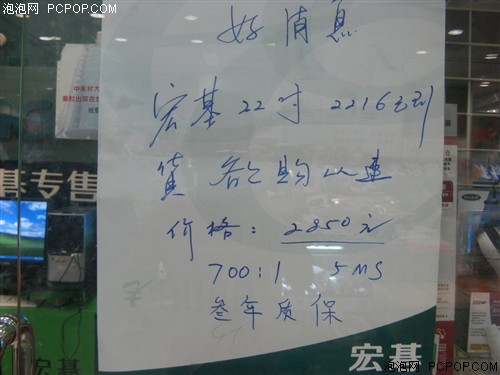 泡泡网 PCPOP.COM
好消息
宏基 22寸 2216到
货 欲购从速
价格: 2850元
700:1 5MS
叁年质保
宏基
基专售
宏基
中关村大
泡泡网 PCPOP.COM